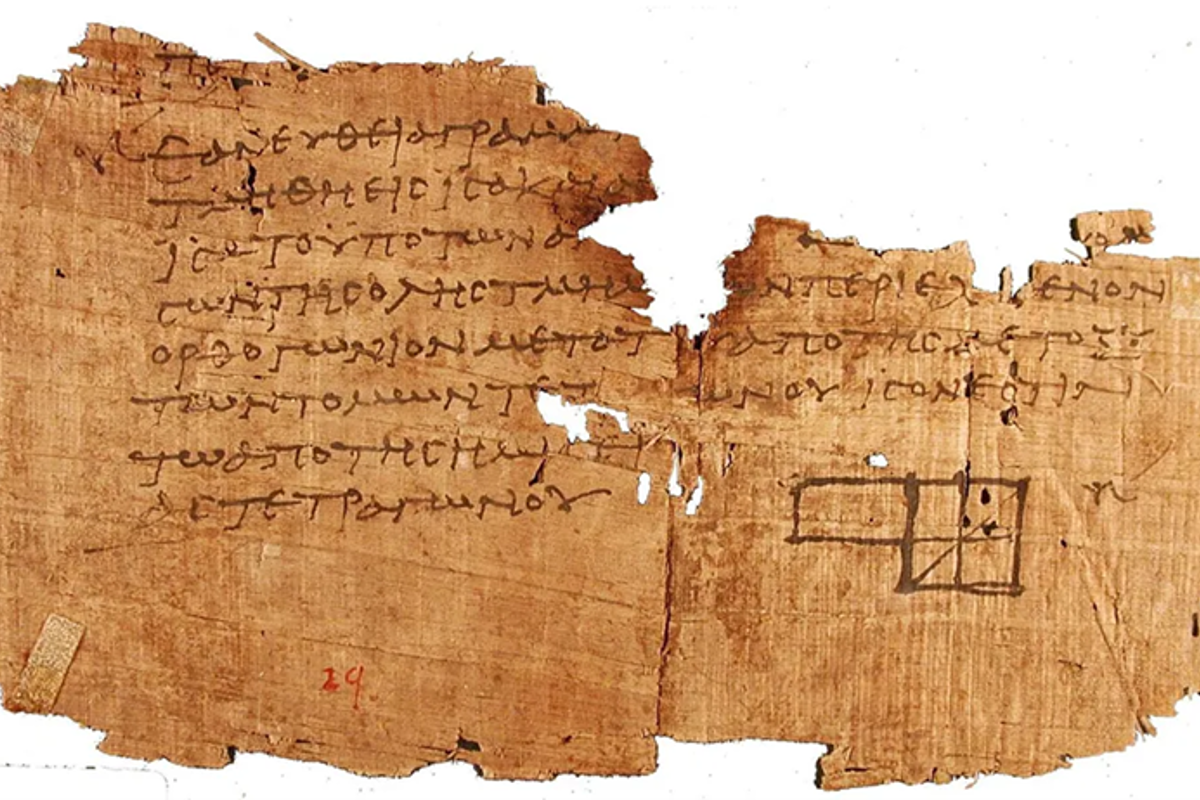 ΕΑΝΕΥΘΕΙΑΓΡΑΜ
ΤΜΗΘΗΕΙϹΙϹΑΚΑΙΑ
ΙϹΑΤΟΥΠΟΤΩΝΑ
ϹΩΝΤΗϹΟΛΗϹΤΜΗΜ ΩΝΠΕΡΙΕΧ ΕΝΟΝ
ΟΡΘΟΓΩΝΙΟΝΜΕΤΑΤ ΑΠΟΤΗϹΜΕΤΟΞΥ
ΤΩΝΤΟΜΩΝΤΕΤ ΩΝΟΥΙϹΟΝΕϹΤΙΝ
ΤΩΑΠΟΤΗϹΗΜΙ ΕΙ
ΑϹΤΕΤΡΑΓΩΝΟΥ
29